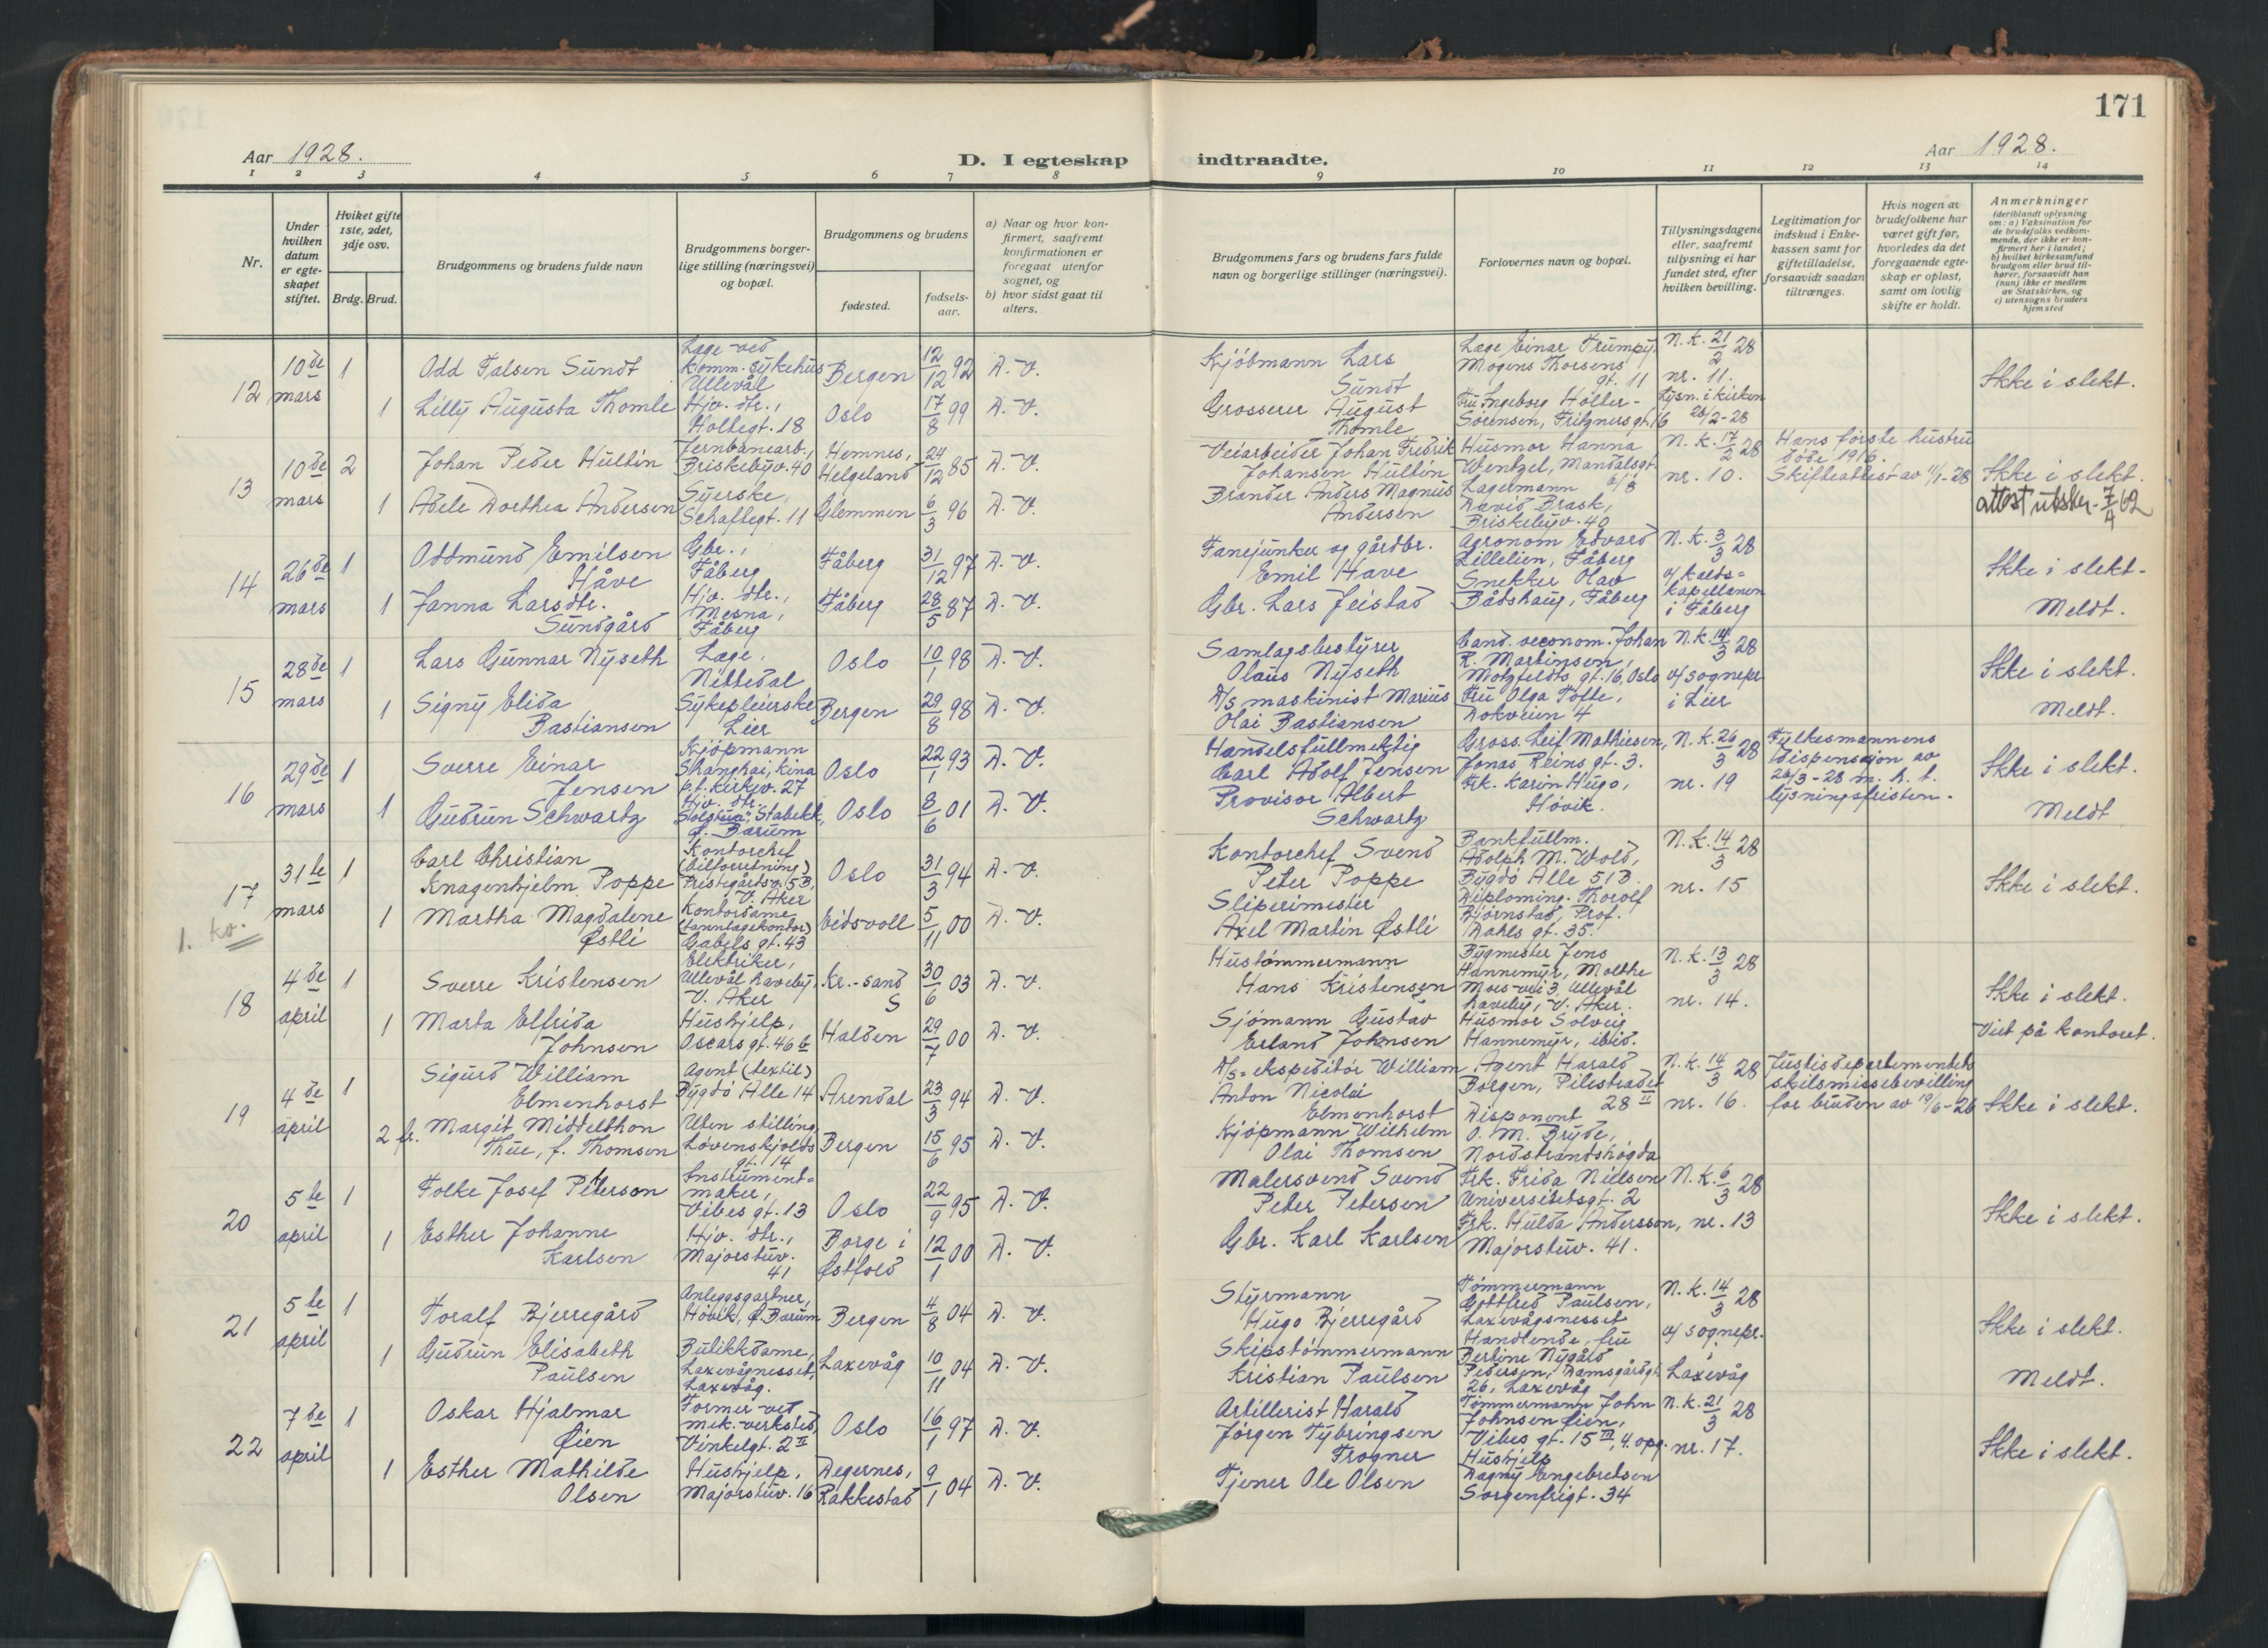 171
Aar 1928.
D. I egteskap indtraadte.
Aar 1928.
1 2 3 4 5 6 7 8 9 10 11 12 13 14
Nr.
Under
hvilken
datum
er egte-
skapet
stiftet.
Hviket gifte
1ste, 2det,
3dje osv.
Brdg. Brud.
Brudgommens og brudens fulde navn
Brudgommens borger-
lige stilling (næringsvei)
og bopæl.
Brudgommens og brudens
fødested.
fødsels-
aar.
a) Naar og hvor kon-
firmert, saafremt
konfirmationen er
foregaat utenfor
sognet, og
b) hvor sidst gaat til
alters.
Brudgommens fars og brudens fars fulde
navn og borgerlige stillinger (næringsvei).
Forlovernes navn og bopæl.
Tillysningsdagene
eller, saafremt
tillysning ei har
fundet sted, efter
hvilken bevilling.
Legitimation for
indskud i Enke-
kassen samt for
giftetilladelse,
forsaavidt saadan
tiltrænges.
Hvis nogen av
brudefolkene har
været gift før,
hvorledes da det
foregaaende egte-
skap er opløst,
samt om lovlig
skifte er holdt.
Anmerkninger
(deriblandt oplysning
om: a) Vaksination for
de brudefolks vedkom-
mende, der ikke er kon-
firmert her i landet;
b) hvilket kirkesamfund
brudgom eller brud til-
hører, forsaavidt han
(hun) ikke er medlem
av Statskirken, og
c) utensogns bruders
hjemsted
12
10de
mars
1
Odd Falsen Sundt
Læge ved
Komm. sykehus
Ullevål
Bergen
12/12 92
D. V.
Kjöbmann Lars
Sundt
Læge Einar Trumpy,
Mogens Thorsens
gt. 11
N. K. 21/2 28
nr. 11.
Ikke i slekt.
1
Lilly Augusta Thomle
Hjv. dtr.,
Holtegt. 18
Oslo
17/8 99
D. V.
Grosserer August
Thomle
Fru Ingeborg Holter-
Sörensen, Fritzners gt. 16
Lysn. i kirken
26/2-28
13
10de
mars
2
Johan Peder Hultin
Jernbanearb.,
Briskebyv. 40
Hemnes,
Helgeland
24/12 85
D. V.
Veiarbeider Johan Fredrik
Johansen Hultin
Husmor Hanna
Wentzel, Mandalsgt.
N. K. 17/2 28
nr. 10.
Hans første hustru
döde 1916.
Skifteattest av 11/1-28
Ikke i slekt.
attest utskr. 7/4 62
1
Adele Dorthea Andersen
Syerske,
Schaftegt. 11
Glemmen
6/3 96
D. V.
Brander Anders Magnus
Andersen
Lagermann
David Brask,
Briskebyv. 40
14
26de
mars
1
Oddmund Emilsen
Håve
Gbr.,
Fåberg
Fåberg
31/12 97
D. V.
Fanejunker og gårdbr.
Emil Have
Agronom Edvard
Lillelien, Fåberg
N. K. 3/3 28
v/ Kalds-
kapellanen
i Fåberg
Ikke i slekt.
Meldt.
1
Janna Larsdtr.
Sundgård
Hjv. dtr.,
Mesna,
Fåberg
Fåberg
28/5 87
D. V.
Gbr. Lars Jeistad
Snekker Olav
Bådshaug, Fåberg
15
28de
mars
1
Lars Gunnar Nyseth
Læge,
Nittedal
Oslo
10/1 98
D. V.
Samlagsbestyrer
Olaus Nyseth
Cand. oeconom. Johan
R. Martinsen,
Motzfeldts gt. 16, Oslo
N. K. 14/3 28
v/ sognepr.
i Lier
Ikke i slekt.
Meldt.
1
Signy Elida
Bastiansen
Sykepleierske
Lier
Bergen
29/8 98
D. V.
D/S maskinist Marius
Olai Bastiansen
Fru Olga Tofte,
Dokveien 4
16
29de
mars
1
Sverre Einar
Jensen
Kjöpmann
Shanghai, Kina
p. t. Kirkev. 27
Oslo
22/1 93
D. V.
Handelsfullmektig
Carl Adolf Jensen
Gross. Leif Mathiesen,
Jonas Reins gt. 3.
N. K. 26/3 28
nr. 19
Fylkesmannens
dispensasjon av
26/3-28 m. h. t.
lysningsfristen.
Ikke i slekt.
Meldt
1
Gudrun Schwartz
Hjv. dtr.
"Solstua", Stabekk,
Ø. Bærum
Oslo
8/6 01
D. V.
Provisor Albert
Schwartz
Frk. Karin Hugo,
Hövik.
17
1. ko.
31te
mars
1
Carl Christian
Knagenhjelm Poppe
Kontorchef
(bilforretning)
Prestegårdsv. 5 B,
V. Aker
Oslo
31/3 94
D. V.
Kontorchef Svend
Peter Poppe
Bankfullm.
Adolph M. Wold,
Bygdö Alle 51 B.
N. K. 14/3 28
nr. 15
Ikke i slekt.
1
Martha Magdalene
Østli
Kontordame
(tannlægekontor)
Gabels gt. 43
Eidsvoll
5/11 00
D. V.
Sliperimester
Axel Martin Østli
Diploming. Thorolf
Bjørnstad, Prof.
Dahls gt. 35.
18
4de
april
1
Sverre Kristensen
Elektriker,
Ullevål haveby,
V. Aker
Kr.-sand
S
30/6 03
D. V.
Hustømmermann
Hans Kristensen
Bygmester Jens
Hannemyr, Molthe
Moes vei 3 Ullevål
haveby, V. Aker.
N. K. 13/3 28
nr. 14.
Ikke i slekt.
Viet på kontoret.
1
Marta Elfrida
Johnsen
Hushjelp,
Oscars gt. 46 b
Halden
29/7 00
D. V.
Sjömann Gustav
Erland Johnsen
Husmor Solveig
Hannemyr, ibid.
19
4de
april
1
Sigurd William
Elmenhorst
Agent (textil)
Bygdö Alle 14
Arendal
23/3 94
D. V.
D/S-ekspeditör William
Anton Nicolai
Elmenhorst
Agent Harald
Borgen, Pilestradet
28 II
N. K. 14/3 28
nr. 16.
Justisdepartementets
skilsmissebevilling
for bruden av 19/6-26
Ikke i slekt.
2 fr.
Margit Middelthon
Thue, f. Thomsen
Uten stilling,
Løvenskjolds
gt. 14
Bergen
15/6 95
D. V.
Kjöpmann Wilhelm
Olai Thomsen
Disponent
O. M. Bryde,
Nordstrandshögda
20
5te
april
1
Folke Josef Peterson
Instrument-
maker,
Vibes gt. 13
Oslo
22/9 95
D. V.
Malersvend Svend
Peter Petersen
Frk. Frida Nielsen
Universitetsgt. 2
N. K. 6/3 28
nr. 13
Ikke i slekt.
1
Esther Johanne
Karlsen
Hjv. dtr.,
Majorstuv.
41
Borge i
Østfold
12/1 00
D. V.
Gbr. Karl Karlsen
Frk. Hulda Andersson,
Majorstuv. 41.
21
5te
april
1
Toralf Bjerregård
Anleggsgartner,
Hövik, Ø. Bærum
Bergen
4/8 04
D. V.
Styrmann
Hugo Bjerregård
Tømmermann
Gottfred Paulsen,
Laxevågsnesset
N. K. 14/3 28
v/ sognepr.
i
Laxevåg
Ikke i slekt.
Meldt.
1
Gudrun Elisabeth
Paulsen
Butikkdame,
Laxevågnesset,
Laxevåg.
Laxevåg
10/11 04
D. V.
Skipstömmermann
Kristian Paulsen
Handlende, fru
Bertine Nygård
Pedersen, Damsgårdgt.
26, Laxevåg
22
7de
april
1
Oskar Hjalmar
Øien
Former ved
mek. verksted,
Vinkelgt. 2 II
Oslo
16/1 97
D. V.
Artillerist Harald
Jörgen Tybringsen
Frogner
Tömmermann John
Johnsen Øien,
Vibes gt. 15 III, 4. opg.
N. K. 21/3 28
nr. 17.
Ikke i slekt.
1
Esther Mathilde
Olsen
Hushjelp,
Majorstuv. 16
Degernes,
Rakkestad
9/1 04
D. V.
Tjener Ole Olsen
Hushjelp
Dagny Engebretsen
Sorgenfrigt. 34